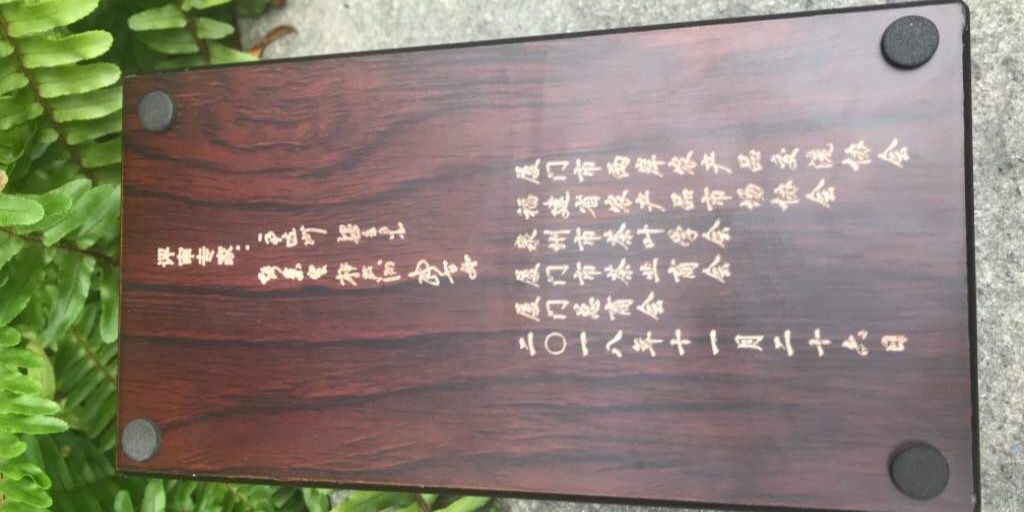 厦门市两岸农产品交流协会
福建省农产品市场协会
泉州市茶叶学会
厦门市茶业商会
厦门总商会
二〇一八年十一月二十九日
评审专家：